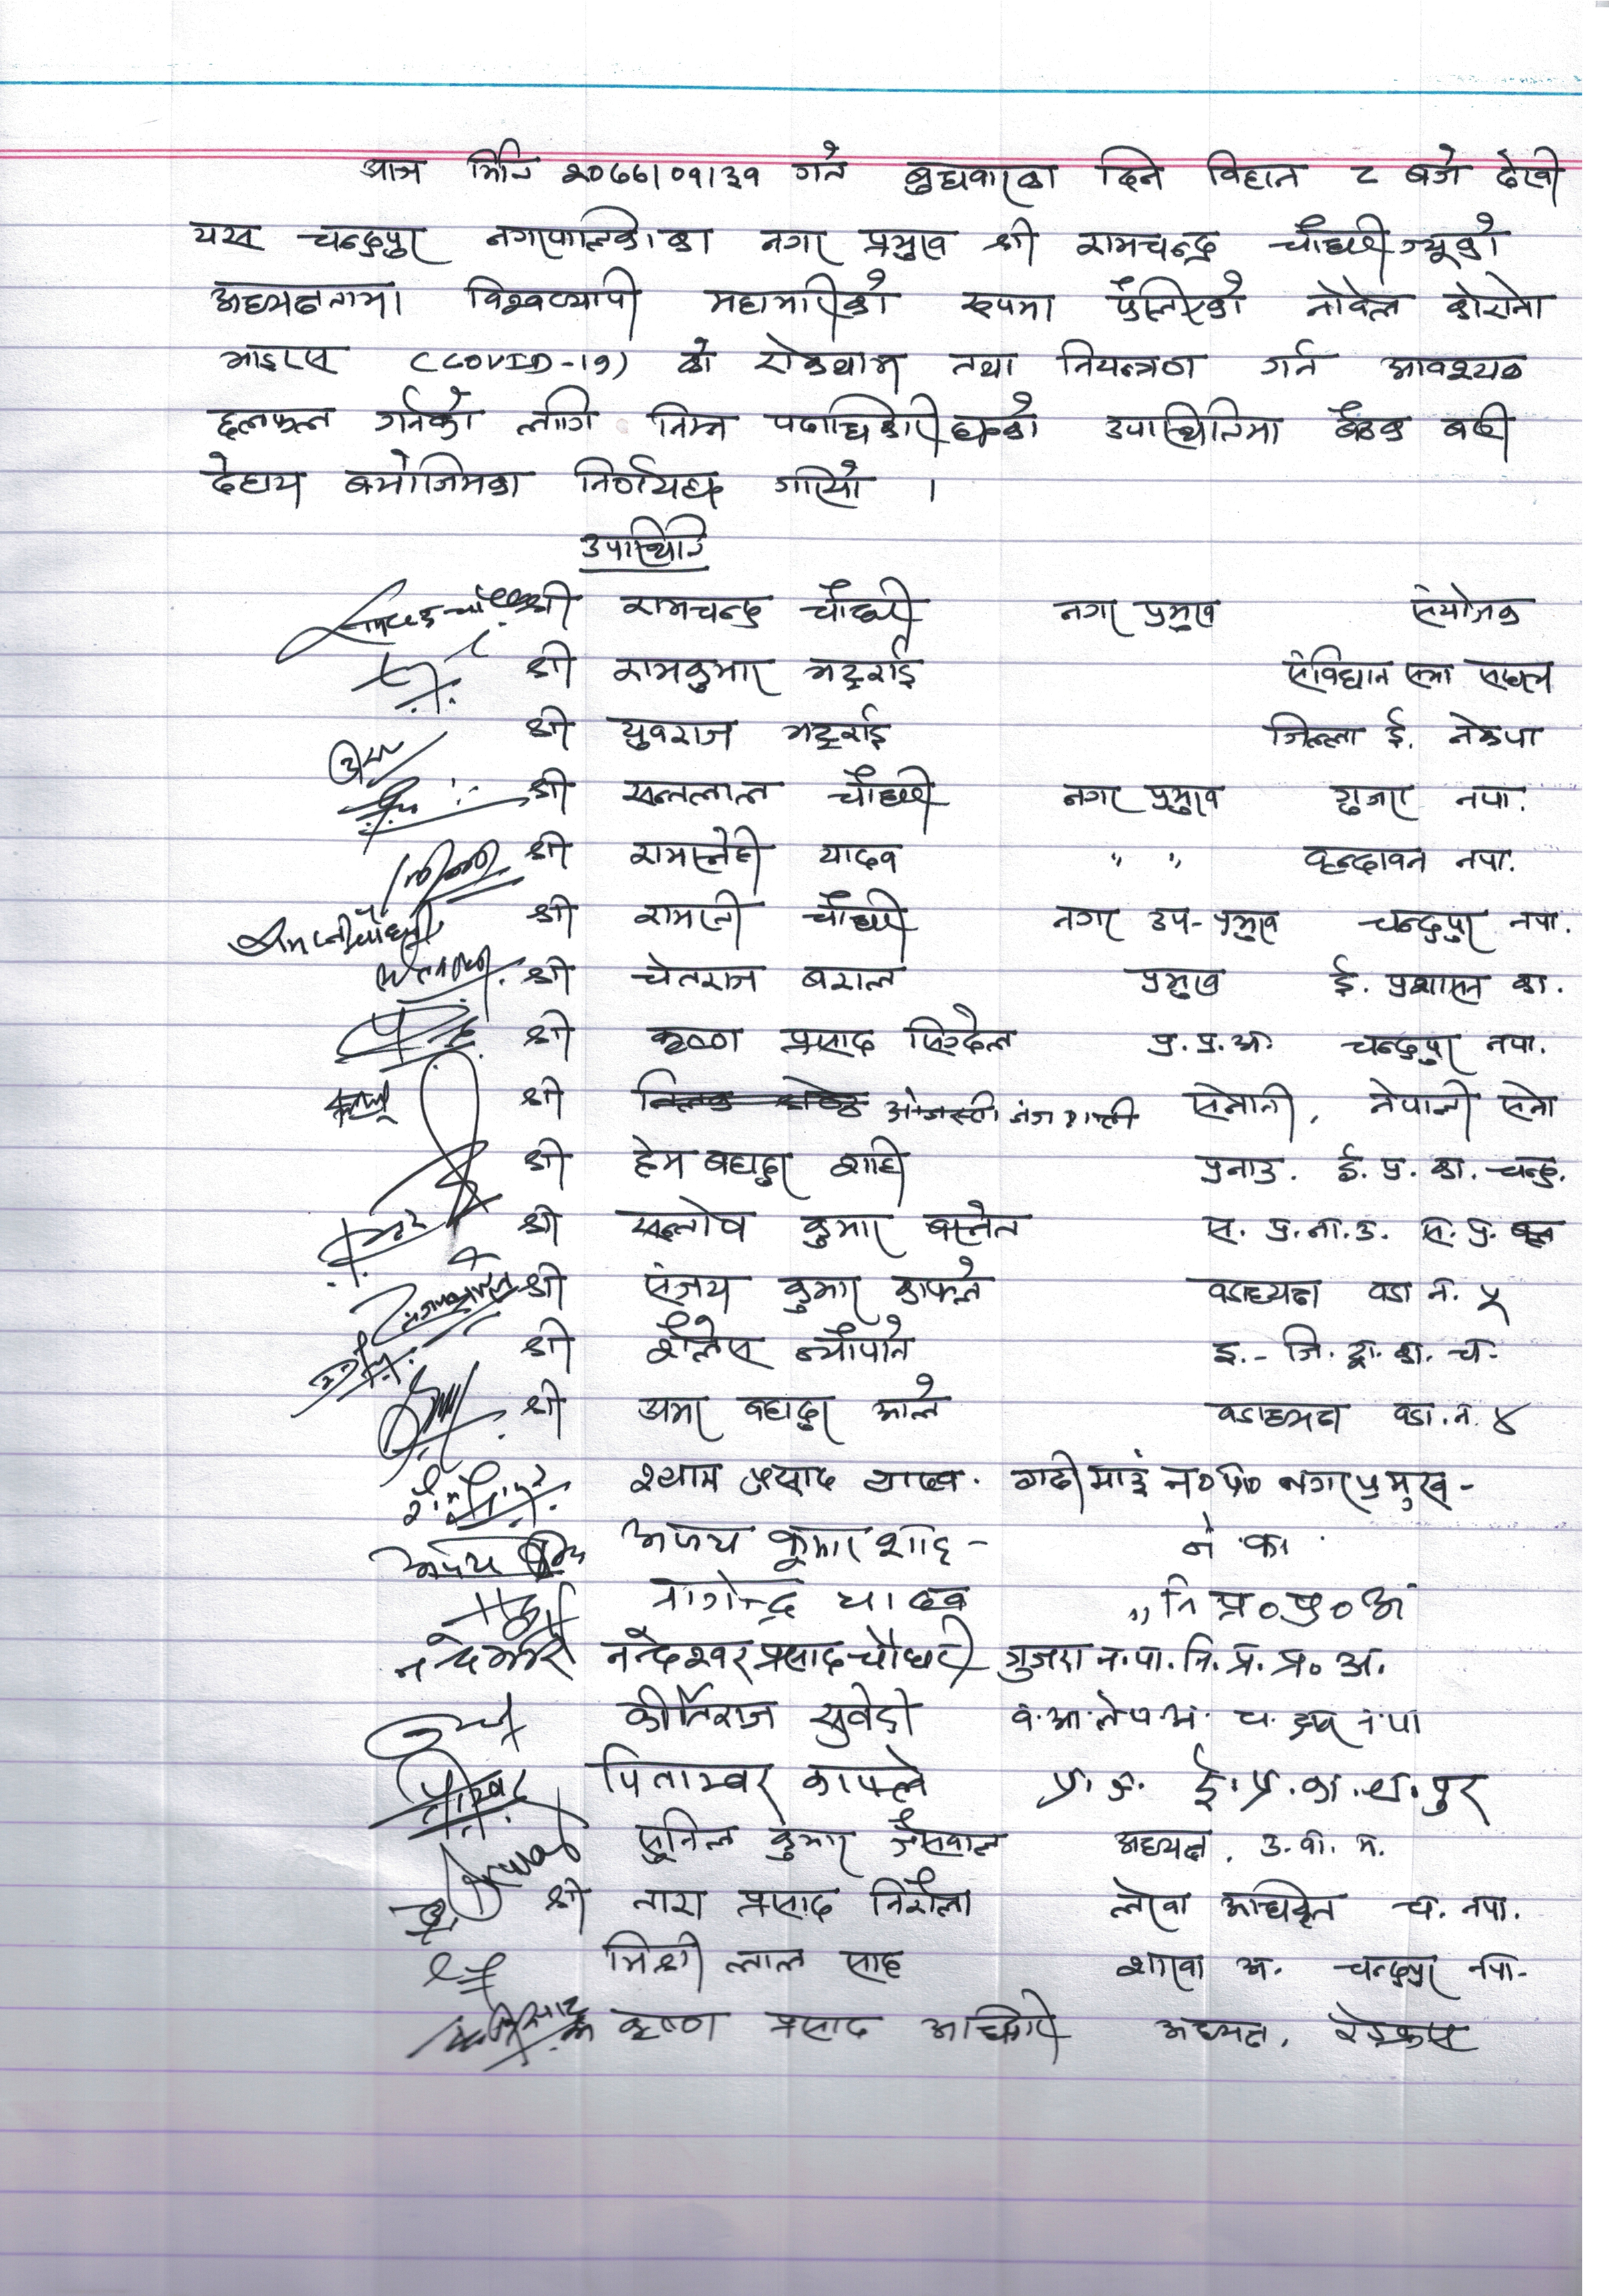 आज मिति २०७७।०१।३१ गते बुधवारका दिन विहान ८ बजे देखी
यस चन्द्रपुर नगरपालिकाका नगर प्रमुख श्री रामचन्द्र चौधरीज्यूको
अध्यक्षतामा विश्वव्यापी महामारीको रुपमा फैलिएको नोवेल कोरोना
भाइरस (COVID-19) को रोकथाम तथा नियन्त्रण गर्न आवश्यक
छलफल गर्नको लागि निम्न पदाधिकारीहरुको उपास्थितिमा बैठक बसी
देहाय बमोजिमका निर्णयहरु गरियो ।
उपास्थिति
श्री रामचन्द्र चौधरी नगर प्रमुख संयोजक
श्री रामकुमार भट्टराई संविधान सभा सदस्य
श्री युवराज भट्टराई जिल्ला ई. नेकपा
श्री सन्तलाल चौधरी नगर प्रमुख गुजरा नपा.
श्री रामस्नेही यादव " " वृन्दावन नपा.
रामरती चौधरी श्री रामरती चौधरी नगर उप-प्रमुख चन्द्रपुर नपा.
श्री चेतराज बराल प्रमुख ई. प्रशासन का.
श्री कृष्ण प्रसाद सिग्देल प्र.प्र.अ. चन्द्रपुर नपा.
श्री सेनानी, नेपाली सेना
श्री हेम बहादुर शाही प्रनाउ. ई. प्र. का. चन्द्र.
श्री सन्तोष कुमार बस्नेत स. प्र.ना.उ. स. प्र. बल
श्री संजय कुमार काफ्ले वडाध्यक्ष वडा नं. ५
श्री शैलेस न्यौपाने इ.- जि. ट्रा. का. चं.
श्री अमर बहादुर आले वडाध्यक्ष वडा.नं. ४
श्याम प्रसाद यादव. गढीमाई न०पा० नगर प्रमुख -
अजय कुमार शाह - ने का
नागेन्द्र यादव " नि प्र० प्र० अ
नन्देश्वर प्रसाद चौधरी गुजरा न.पा. नि. प्र. प्र. अ.
कीर्तिराज सुवेदी
पिताम्वर काफ्ले ई. प्र. का. च. पुर
सुनिल कुमार जैसवाल अध्यक्ष, उ. वा. स.
श्री तारा प्रसाद निरौला लेखा अधिकृत चं. नपा.
मिश्री लाल साह शाखा अ. चन्द्रपुर नपा.
कृष्ण प्रसाद अधिकारी अध्यक्ष, रेडक्रस